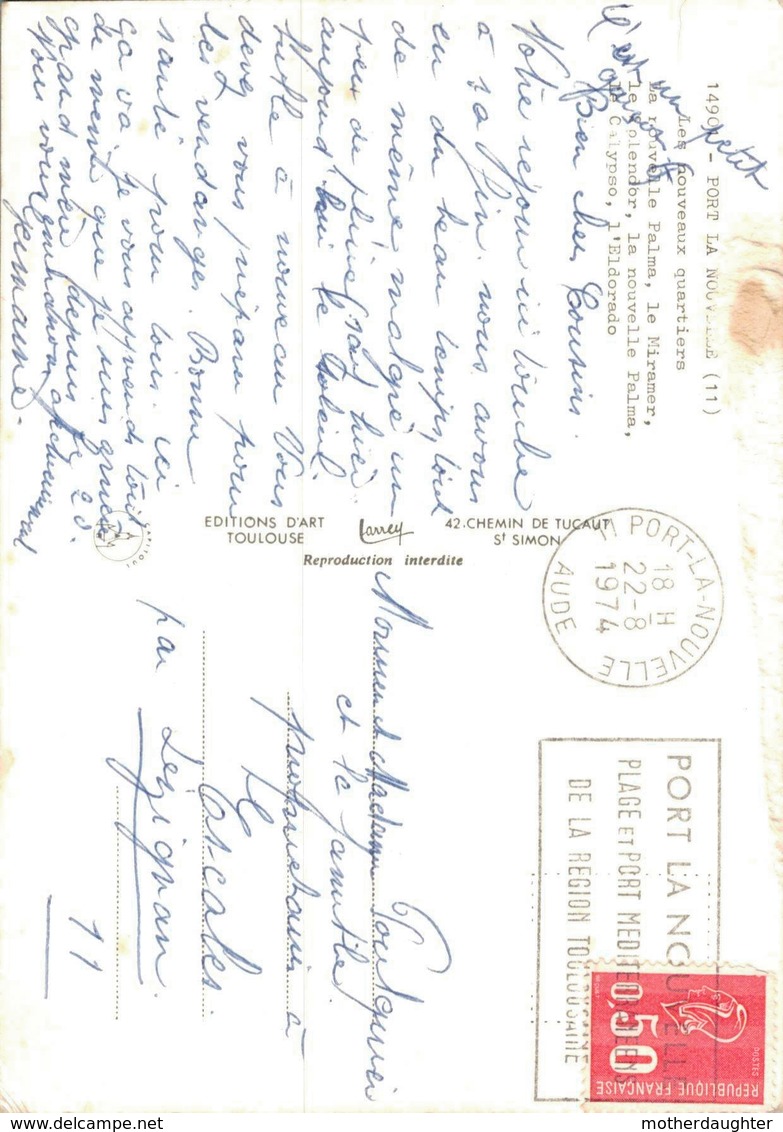 14901 - PORT LA NOUVELLE (11)
Les nouveaux quartiers
La nouvelle Palma, le Miramer,
le Splendor, la nouvelle Palma,
le Calypso, l'Eldorado
c'est un petit
garçon
Bien chers Cousins.
Votre séjour ici touche
à sa fin. nous avons
eu du beau temps, tout
de même, malgré un
peu de pluie hier.
aujourd'hui le soleil
brille à nouveau Vous
devez vous préparer pour
les vendanges. Bonne
santé pour tous. ici
ça va je vous apprends tout
de même que je suis
grand mère depuis le 20.
Nous vous embrassons
Germaine.
EDITIONS D'ART
TOULOUSE
Larrey
42, CHEMIN DE TUCAUT
St SIMON
Reproduction interdite
11 PORT-LA-NOUVELLE
18 H
22-8
1974
AUDE
PORT LA NOUVELLE
PLAGE ET PORT MEDITERRANEENS
DE LA REGION TOULOUSAINE
POSTES
0,50
REPUBLIQUE FRANÇAISE
Monsieur et Madame
et la famille
propriétaire à
Escales.
par Lézignan.
11
motherdaughter